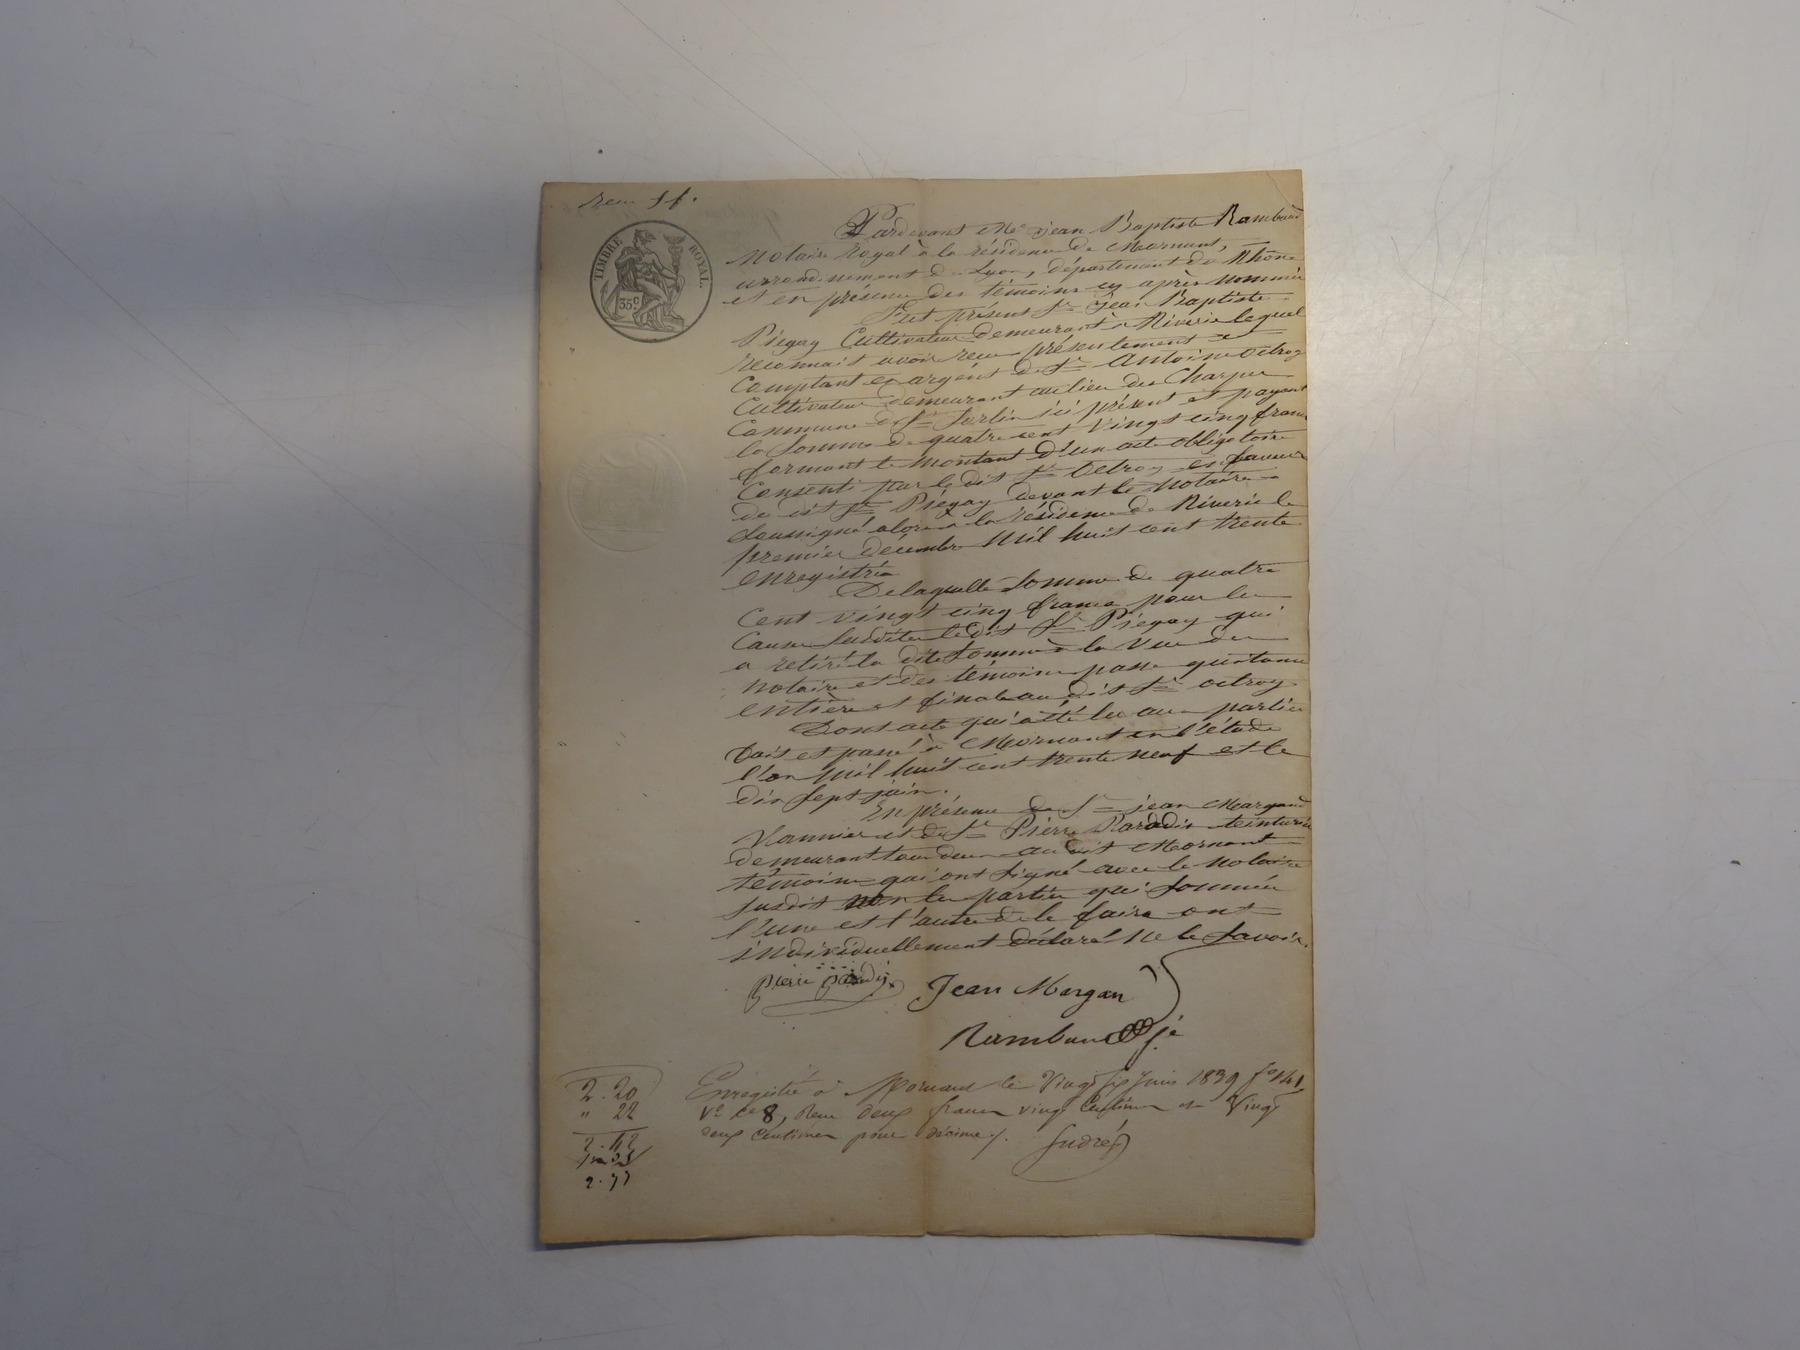 TIMBRE ROYAL.
35 c
Pardevant Me jean Baptiste Rambaud
Notaire Royal à la résidence de Mornant,
arrondissement de Lyon, département du Rhône
et en présence des témoins cy après nommés
Fut présent Sr jean Baptiste
Piégay Cultivateur demeurant à Riverie lequel
reconnait avoir recu présentement et
Comptant en argent de Sr Antoine octroy
Cultivateur demeurant au lieu des Charpes
Commune de St Sorlin ici présent et payant
la Somme de quatre cent vingt cinq francs
formant le montant d'un acte obligatoire
Consenti par le dit Sr Octroy en faveur
de dit Sr Piégay devant le Notaire
Soussigné alors à la résidence de Riverie le
premier décembre Mil huit cent trente
enregistré
De laquelle Somme de quatre
Cent vingt cinq francs pour les
Causes Susdites le dit Sr Piégay qui
a retiré la dite Somme à la Vue des
notaire et des témoins passe quittance
entière et finale au dit Sr octroy
Dont acte qui a été lu aux parties
Fait et passé à Mornant en l'étude
l'an mil huit cent trente neuf et le
dix Sept juin.
En présence de Sr jean Margand
Vannier et de Sr Pierre Paradis teinturier
demeurant tous deux au dit Mornant
témoins qui ont Signé avec le notaire
Susdit non les parties qui Sommées
l'une et l'autre de le faire ont
individuellement déclaré Ne le Savoir.
pierre paradis
Jean Margan
Rambaud
Enregistré à Mornant le Vingt six Juin 1839 fo 141
Vo Ce 8, Recu deux francs vingt Centimes et Vingt
deux Centimes pour décime.
2.20
" 22
2.42